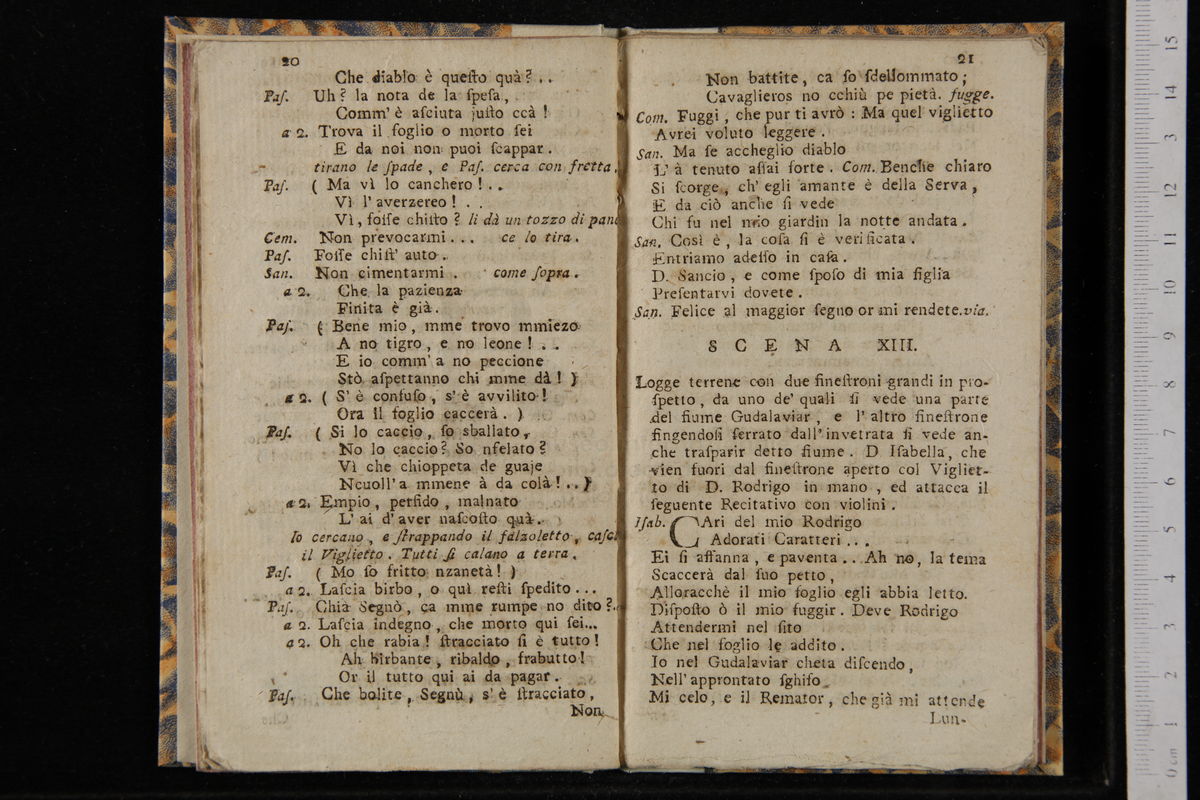 20
Che diablo è queſto quà? . .
Paſ. Uh? la nota de la ſpeſa,
Comm' è aſciuta juſto ccà !
a 2. Trova il foglio o morto ſei
E da noi non puoi ſcappar .
tirano le ſpade , e Paſ. cerca con fretta.
Paſ. ( Ma vì lo canchero ! . .
Vì l' averzereo ! . .
Vì, foſſe chiſto ? li dà un tozzo di pane
Cem. Non prevocarmi . . . ce lo tira.
Paſ. Foſſe chiſt' auto .
San. Non cimentarmi . come ſopra.
a 2. Che la pazienza
Finita è già.
Paſ. ( Bene mio , mme trovo mmiezo
A no tigro , e no leone ! . .
E io comm' a no peccione
Stò aſpettanno chi mme dà ! )
a 2. ( S' è confuſo , s' è avvilito !
Ora il foglio caccerà . )
Paſ. ( Si lo caccio , ſo sballato ,
No lo caccio? So nfelato ?
Vì che chioppeta de guaje
Ncuoll' a mmene à da colà ! . . )
a 2. Empio , perfido , malnato
L' ai d' aver naſcoſto quà .
lo cercano , e ſtrappando il falzoletto , caſca
il Viglietto . Tutti ſi calano a terra .
Paſ. ( Mo ſo fritto nzanetà ! )
a 2. Laſcia birbo , o quì reſti ſpedito . . .
Paſ. Chia Segnò , ca mme rumpe no dito ? .
a 2. Laſcia indegno , che morto qui ſei...
a 2. Oh che rabia ! ſtracciato ſi è tutto !
Ah birbante , ribaldo , frabutto !
Or il tutto qui ai da pagar .
Paſ. Che bolite , Segnù , s' è ſtracciato ,
Non
21
Non battite , ca ſo ſdellommato ;
Cavaglieros no cchiù pe pietà. fugge.
Com. Fuggi , che pur ti avrò : Ma quel viglietto
Avrei voluto leggere .
San. Ma ſe accheglio diablo
L' à tenuto aſſai forte . Com. Benche chiaro
Si ſcorge , ch' egli amante è della Serva ,
E da ciò anche ſi vede
Chi fu nel mio giardin la notte andata .
San. Così è , la coſa ſi è verificata .
Entriamo adeſſo in caſa .
D. Sancio , e come ſpoſo di mia figlia
Preſentarvi dovete .
San. Felice al maggior ſegno or mi rendete.via.
SCENA XIII.
Logge terrene con due fineſtroni grandi in pro-
ſpetto , da uno de' quali ſi vede una parte
del fiume Gudalaviar , e l' altro fineſtrone
fingendoſi ferrato dall' invetrata ſi vede an-
che traſparir detto fiume . D Iſabella , che
vien fuori dal fineſtrone aperto col Vigliet-
to di D. Rodrigo in mano , ed attacca il
ſeguente Recitativo con violini .
Iſab. CAri del mio Rodrigo
Adorati Caratteri . . .
Ei ſi affanna , e paventa . . Ah no, la tema
Scaccerà dal ſuo petto ,
Alloracchè il mio foglio egli abbia letto.
Diſpoſto ò il mio fuggir . Deve Rodrigo
Attendermi nel ſito
Che nel foglio le addito .
Io nel Gudalaviar cheta diſcendo ,
Nell' approntato ſghifo
Mi celo , e il Remator , che già mi attende
Lun-